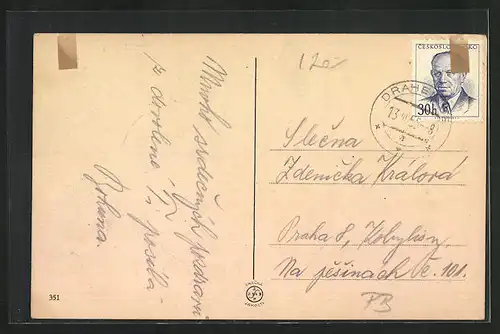 Mnoho srdečných pozdravů
z dovolené Ti posílá
Božena.
120
ČESKOSLOVENSKO
30h
DRAHE
Slečna
Zdenička Králová
Praha 8, Kobylisy
Na pěšinách č. 101.
PB
351